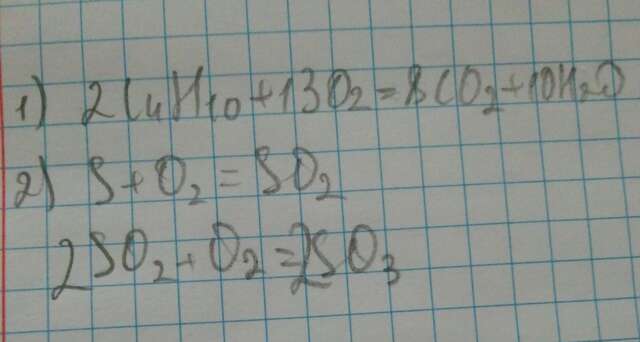 1) 2C₄H₁₀+13O₂=8CO₂+10H₂O
2) S+O₂=SO₂
2SO₂+O₂=2SO₃